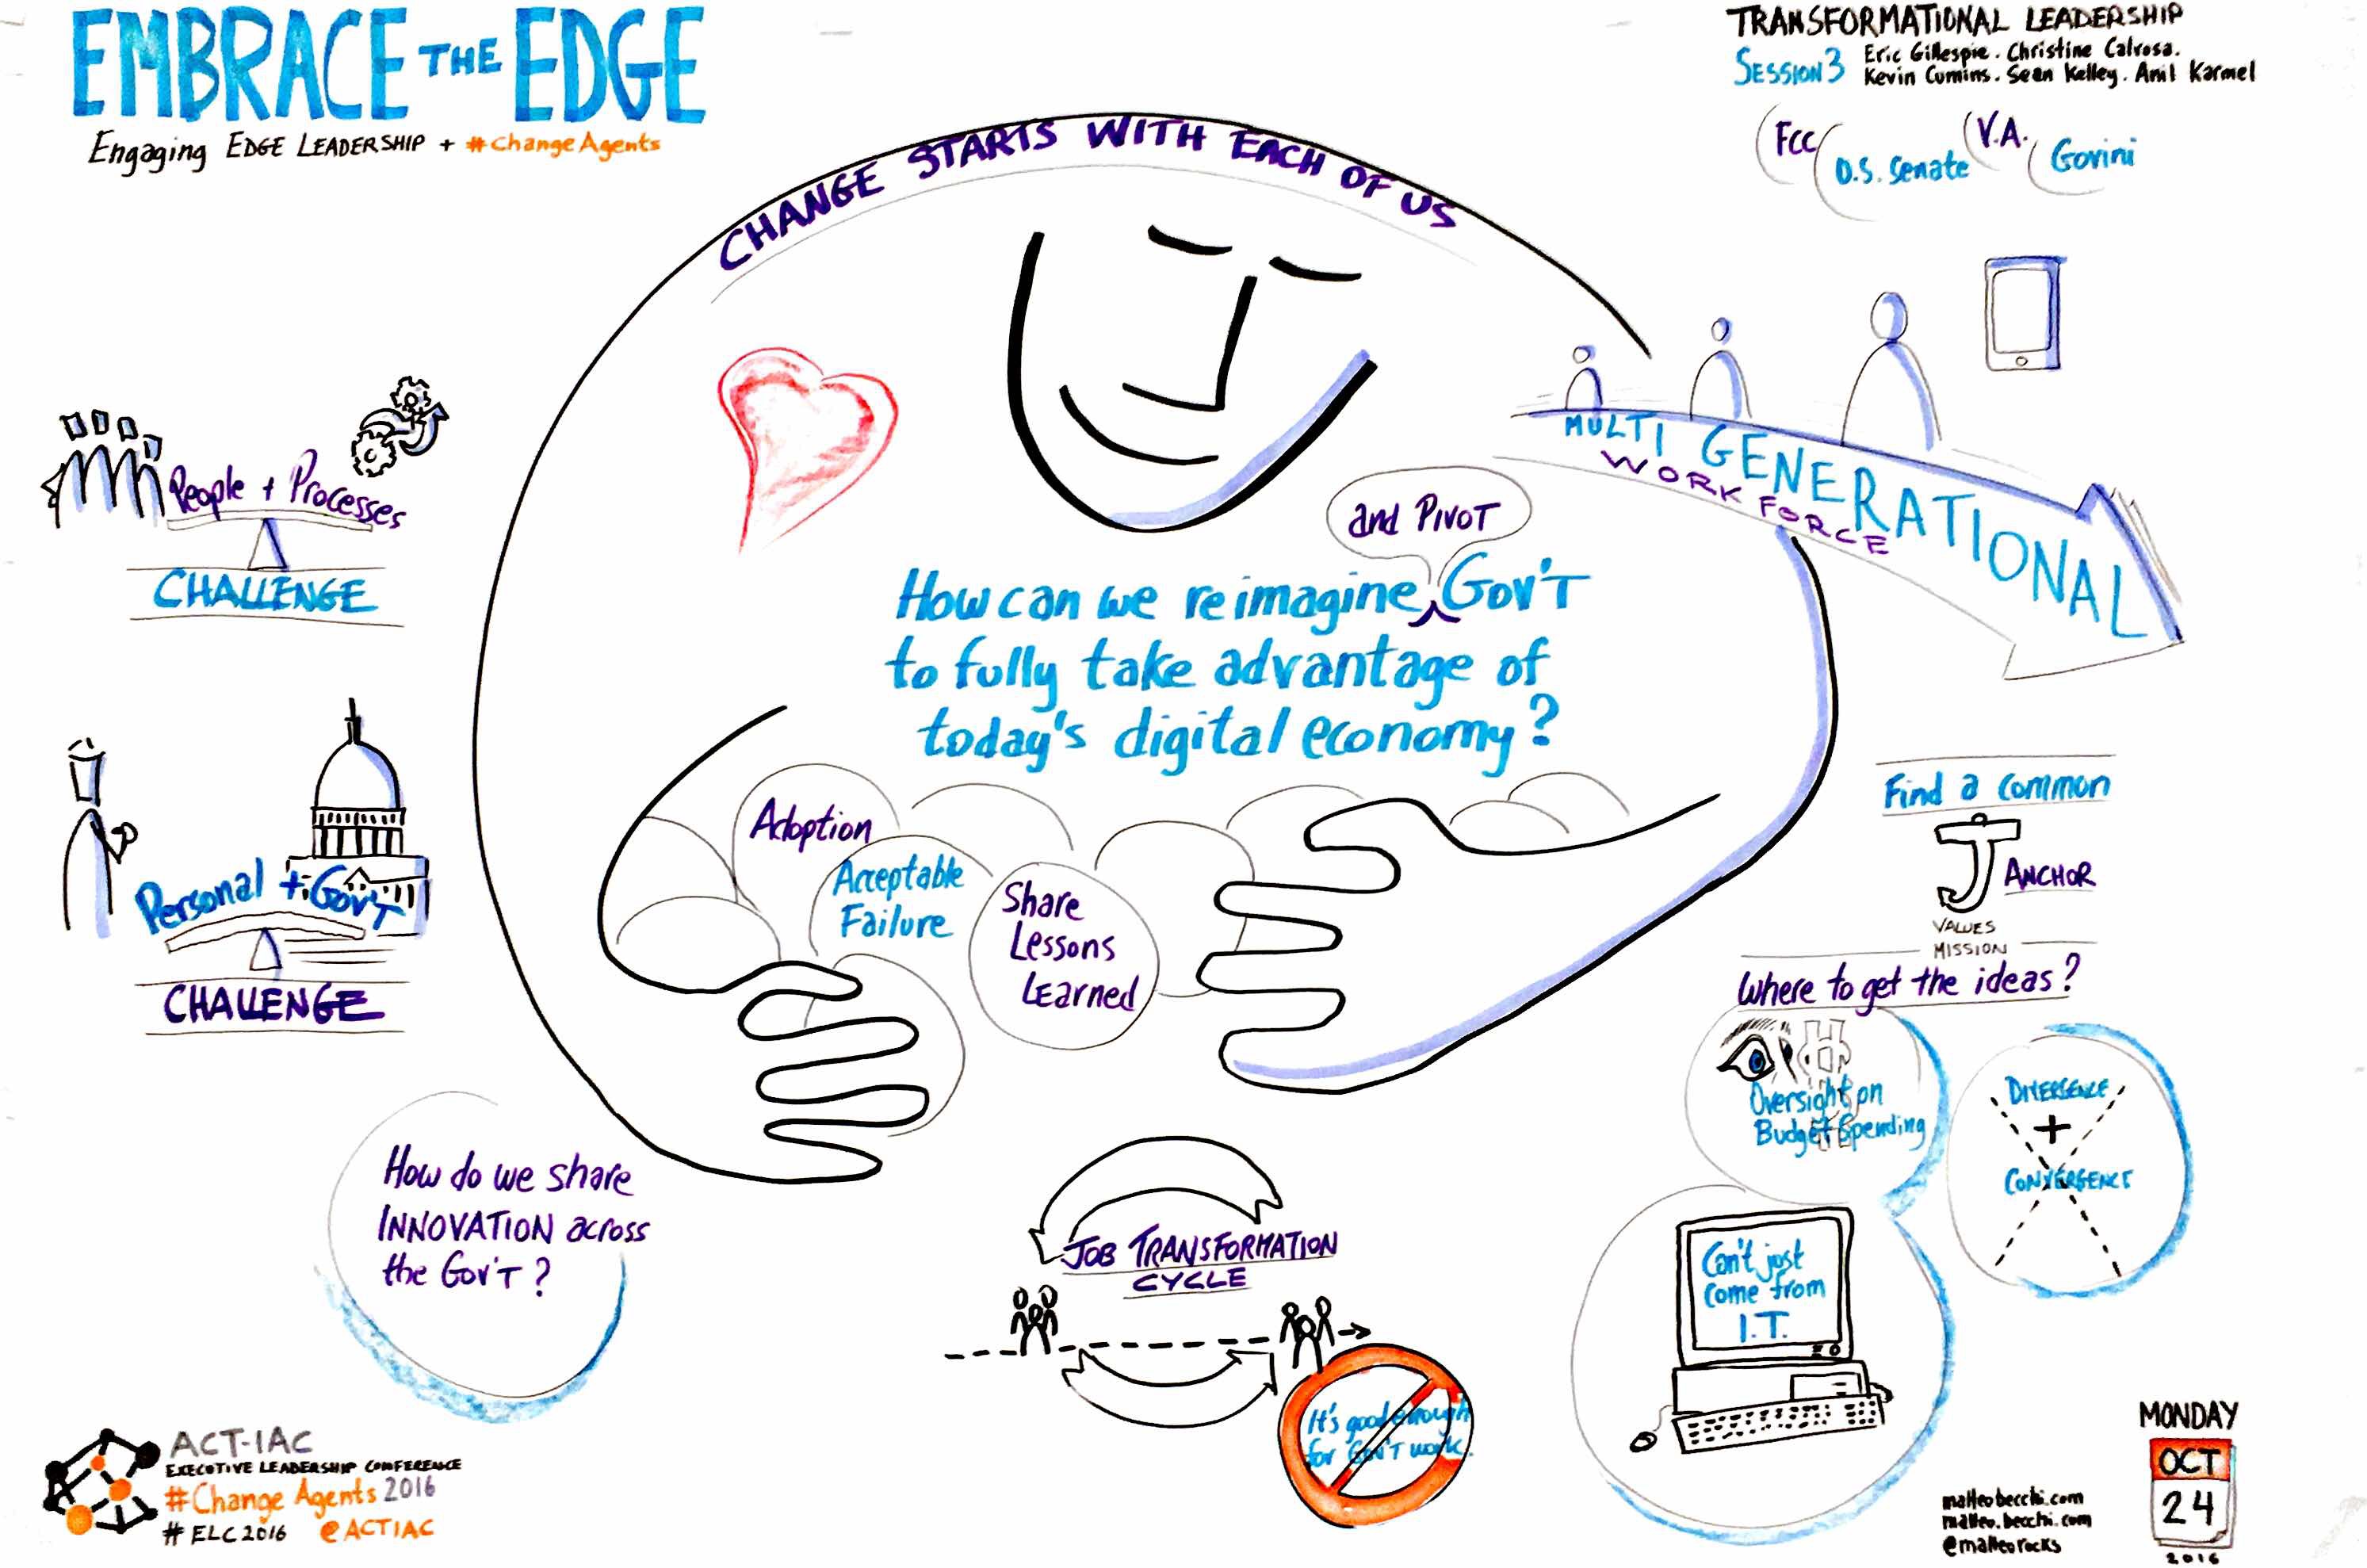 EMBRACE THE EDGE
Engaging EDGE LEADERSHIP + #changeAgents
TRANSFORMATIONAL LEADERSHIP
SESSION 3
Eric Gillespie. Christine Calvosa.
Kevin Cumins. Sean Kelley. Anil Karmel
FCC
U.S. Senate
V.A.
Govini
CHANGE STARTS WITH EACH OF US
People + Processes
CHALLENGE
MULTI GENERATIONAL
WORK FORCE
and PIVOT
How can we reimagine GOV'T
to fully take advantage of
today's digital economy?
Personal + GOV'T
CHALLENGE
Adoption
Acceptable
Failure
Share
Lessons
LEarned
Find a common
ANCHOR
VALUES
MISSION
Where to get the ideas?
Oversight on
Budget Spending
DIVERGENCE
+
CONVERGENCE
Can't just
come from
I.T.
How do we share
INNOVATION across
the GOV'T?
JOB TRANSFORMATION
CYCLE
It's good enough
for GOV'T work.
ACT-IAC
EXECUTIVE LEADERSHIP CONFERENCE
#Change Agents 2016
#ELC2016 @ACTIAC
matteobecchi.com
matteo.becchi.com
@matteorocks
MONDAY
OCT
24
2016